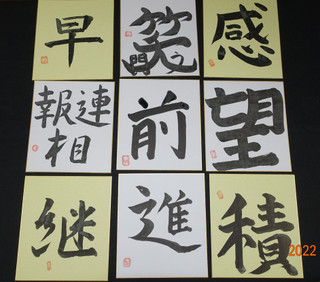 早
笑う門
感
報連
相
前
望
継
進
積
2022